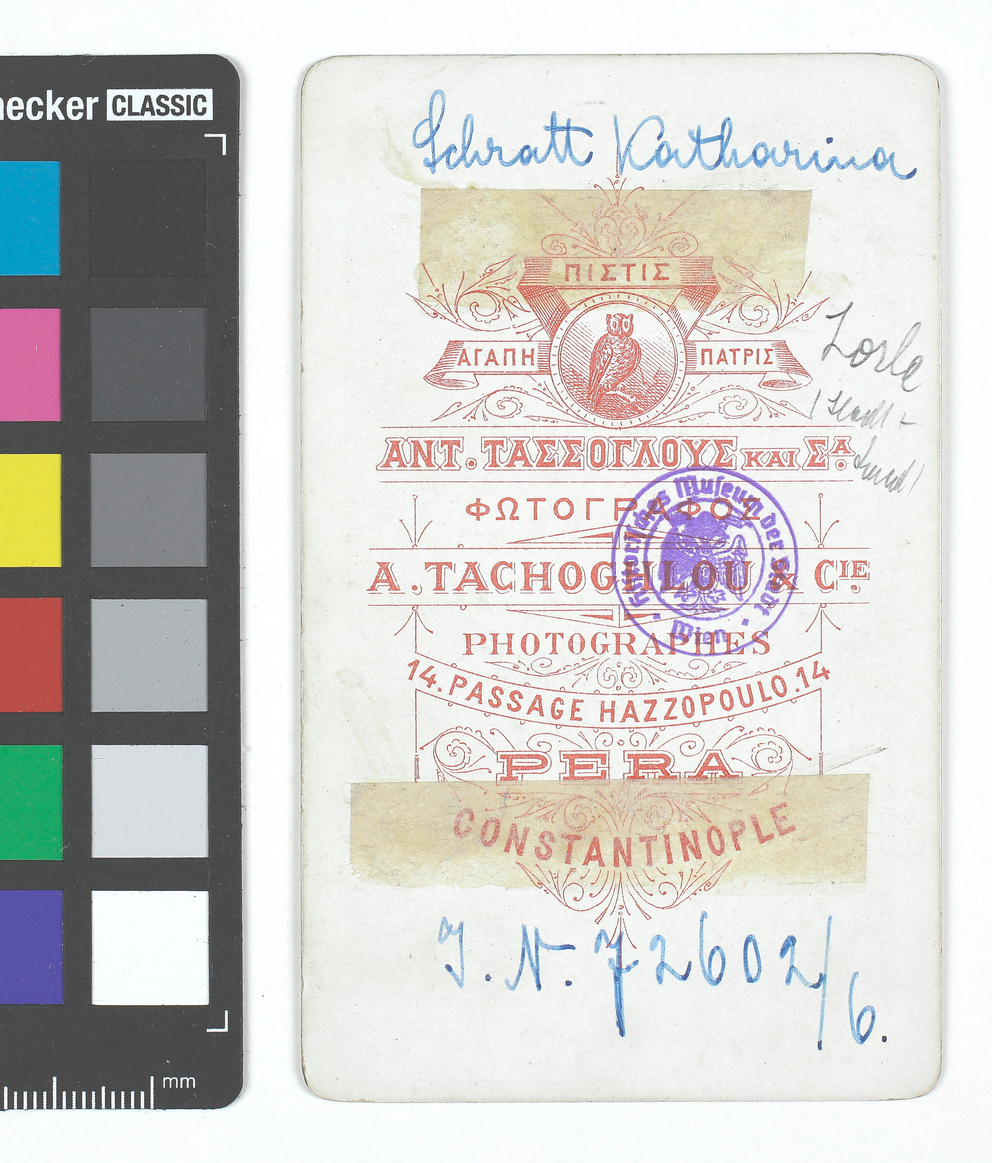 hecker CLASSIC
Schratt Katharina
ΠΙΣΤΙΣ
ΑΓΑΠΗ ΠΑΤΡΙΣ
Lorle
ΑΝΤ. ΤΑΣΣΟΓΛΟΥΣ ΚΑΙ ΣΑ.
ΦΩΤΟΓΡΑΦΟΣ
Historisches Museum der Stadt Wien
A. TACHOGHLOU & CIE
PHOTOGRAPHES
14. PASSAGE HAZZOPOULO. 14
PERA
CONSTANTINOPLE
I. N. 72602/6.
mm